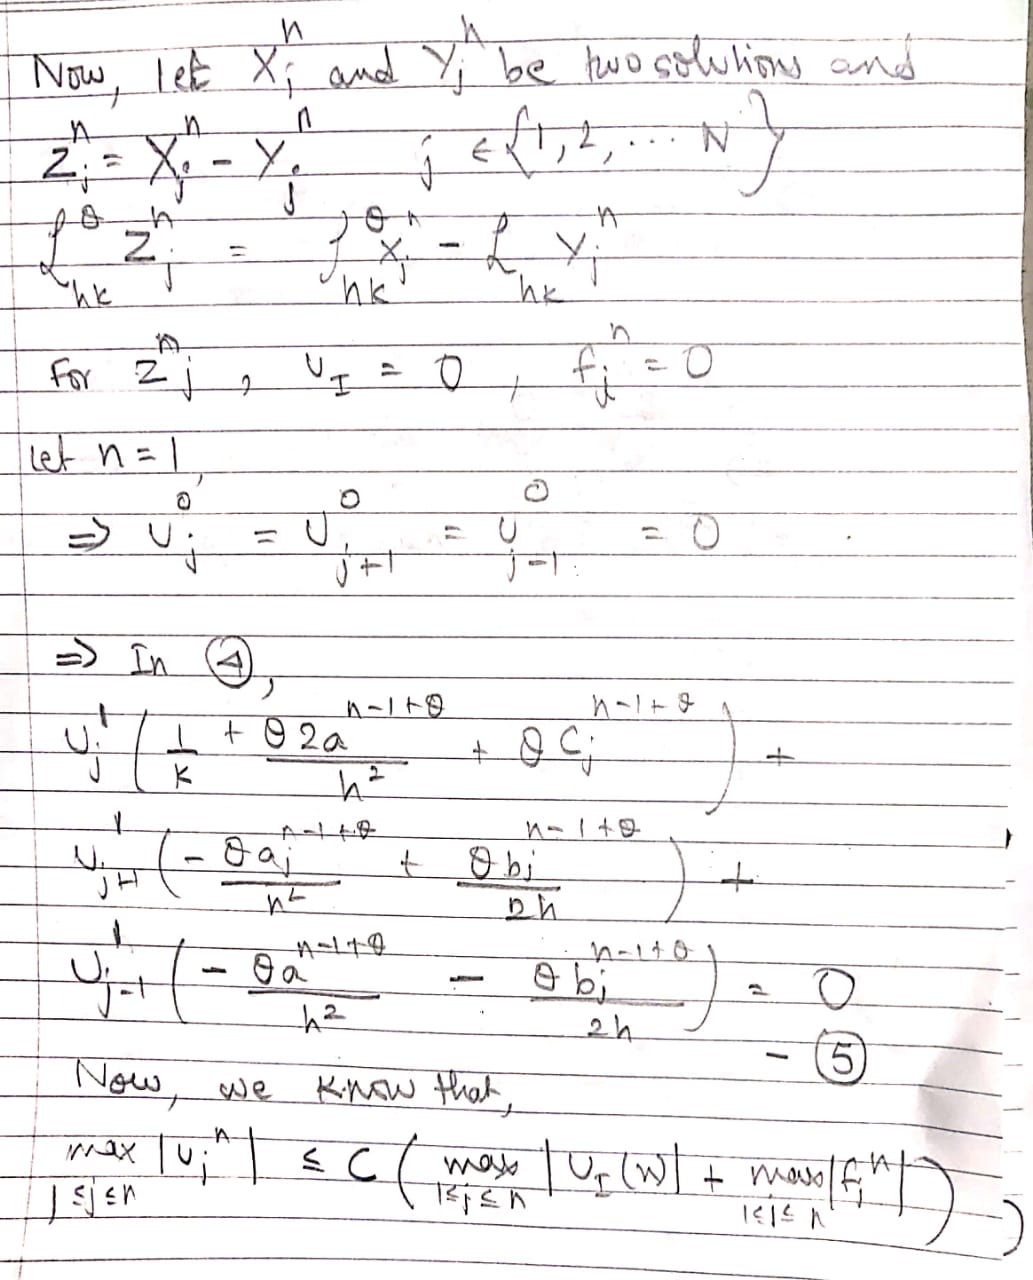 Now, let X_j^n and Y_j^n be two solutions and
Z_j^n = X_j^n - Y_j^n    j ∈ {1, 2, ... N}
L_{hk}^θ Z_j^n = L_{hk}^θ X_j^n - L_{hk} Y_j^n
For Z_j^n , U_I = 0 , f_j^n = 0
let n = 1,
⇒ U_j^0 = U_{j+1}^0 = U_{j-1}^0 = 0
⇒ In ④,
U_j^1 ( 1/k + θ 2a^{n-1+θ}/h^2 + θ C_j^{n-1+θ} ) +
U_{j+1}^1 ( - θ a_j^{n-1+θ}/h^2 + θ b_j^{n-1+θ}/2h ) +
U_{j-1}^1 ( - θ a^{n-1+θ}/h^2 - θ b_j^{n-1+θ}/2h ) = 0
- ⑤
Now, we know that,
max_{1≤j≤n} |U_j^n| ≤ C ( max_{1≤j≤n} |U_I(N)| + max_{1≤j≤n} |f_j^n| )